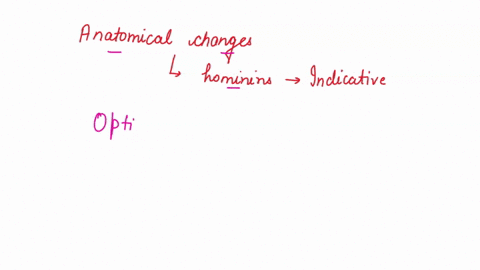 Anatomical changes
↳ hominins → Indicative
Opti